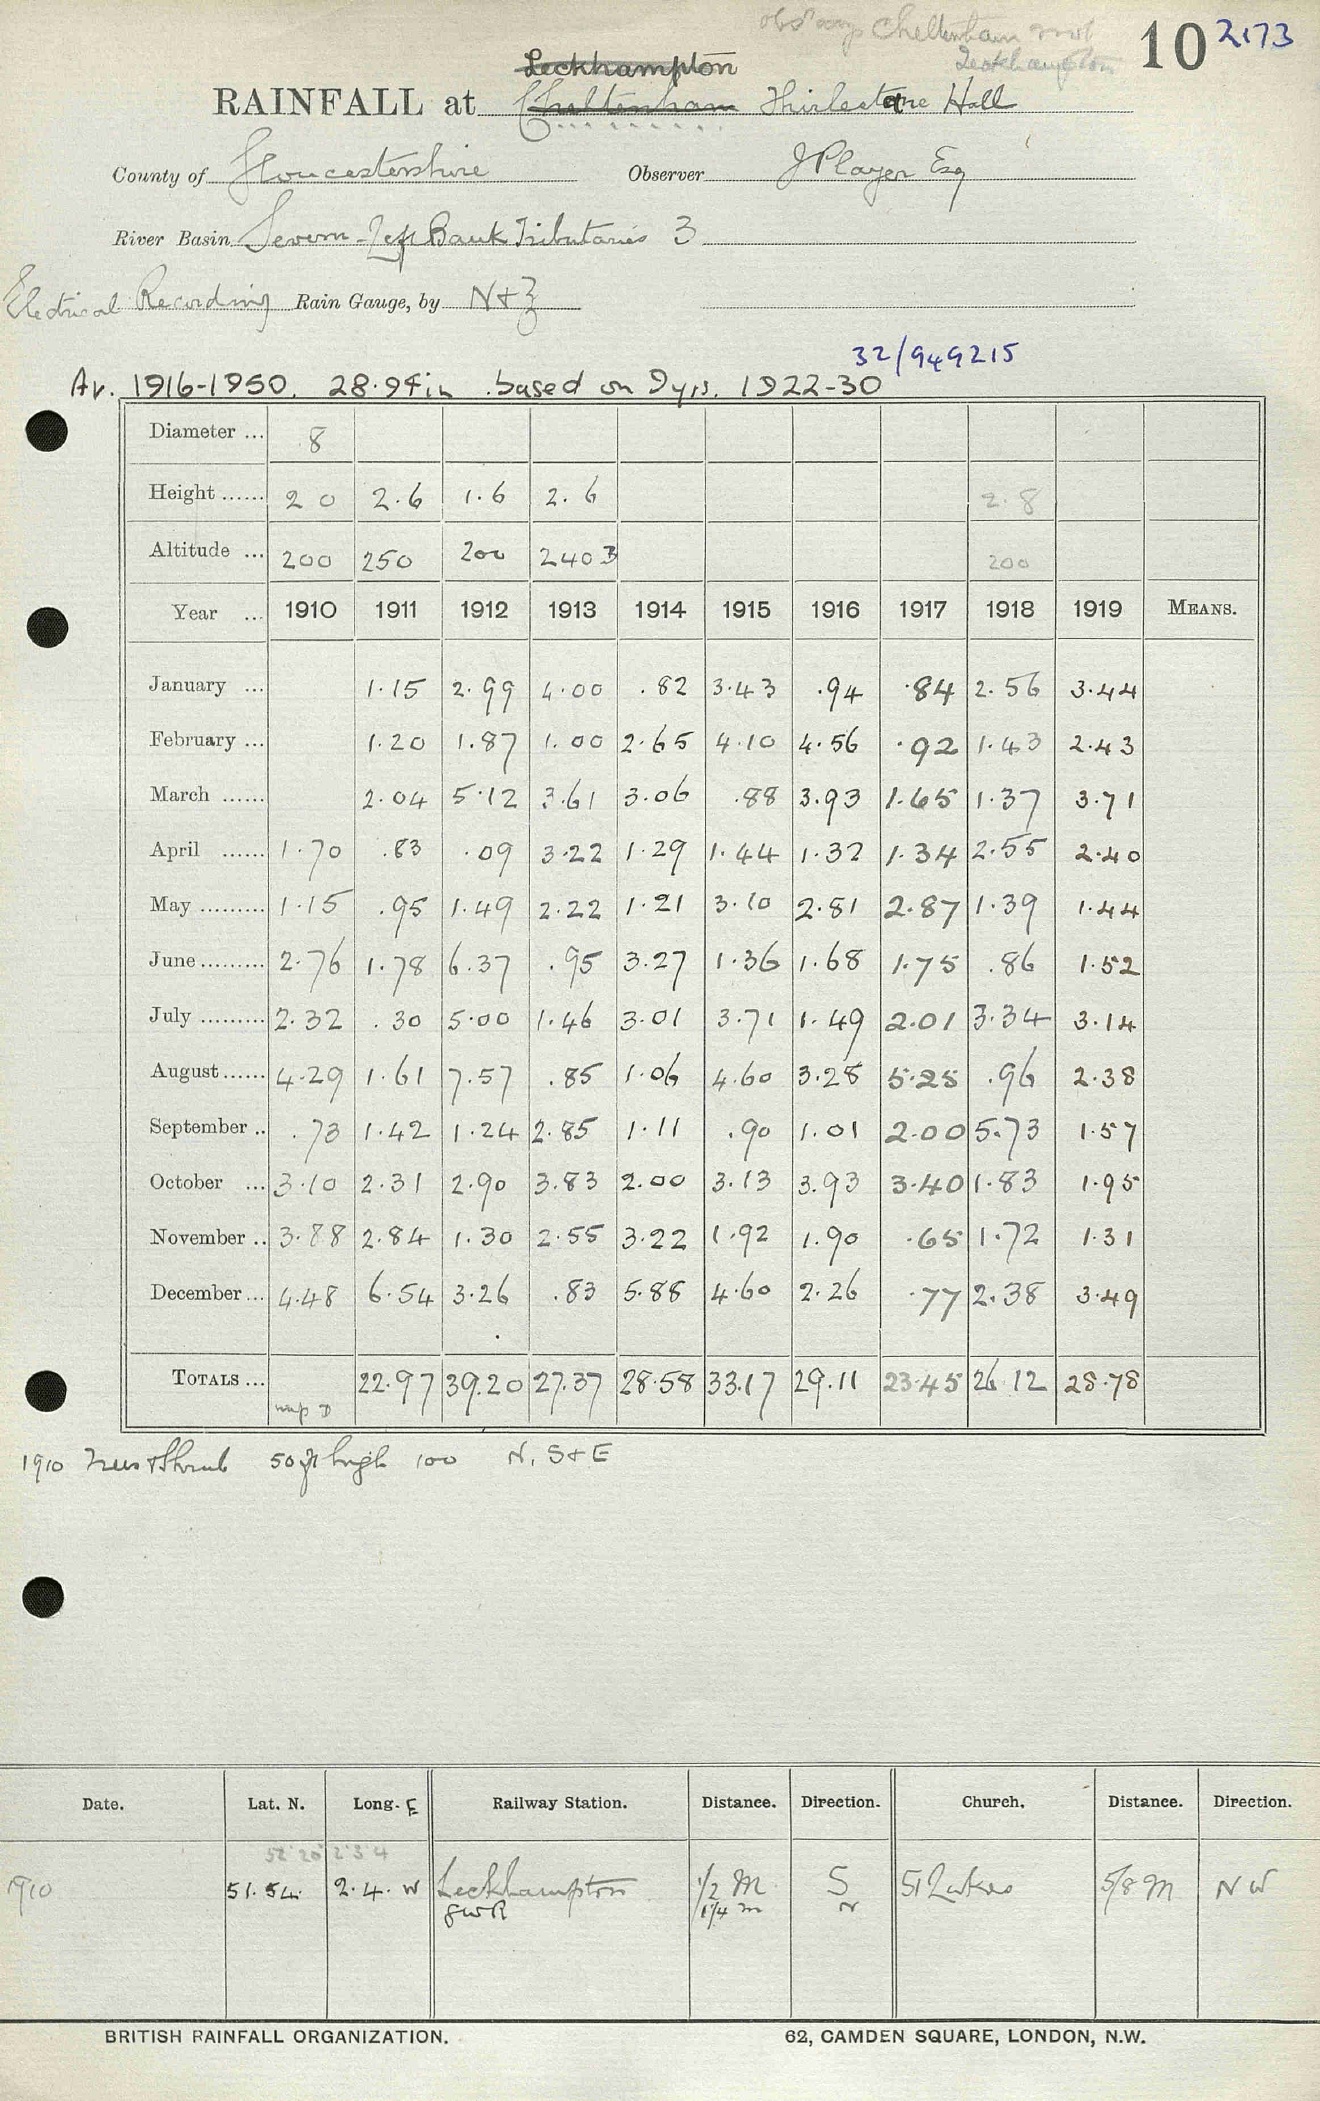 Cheltenham
10 2173
Leckhampton
Leckhampton
RAINFALL at Cheltenham Thirlestane Hall
County of Gloucestershire Observer J Player Esq
River Basin Severn - Left Bank Tributaries 3
Electrical Recording Rain Gauge, by N+Z
32/949215
Av. 1916-1950. 28.94in. based on 9 yrs. 1922-30
Diameter ... 8
Height ...... 20 2.6 1.6 2.6 2.8
Altitude ... 200 250 200 240 B 200
Year ... 1910 1911 1912 1913 1914 1915 1916 1917 1918 1919 MEANS.
January ... 1.15 2.99 4.00 .82 3.43 .94 .84 2.56 3.44
February ... 1.20 1.87 1.00 2.65 4.10 4.56 .92 1.43 2.43
March ...... 2.04 5.12 3.61 3.06 .88 3.93 1.65 1.37 3.71
April ...... 1.70 .83 .09 3.22 1.29 1.44 1.32 1.34 2.55 2.40
May ......... 1.15 .95 1.49 2.22 1.21 3.10 2.81 2.87 1.39 1.44
June ......... 2.76 1.78 6.37 .95 3.27 1.36 1.68 1.75 .86 1.52
July ......... 2.32 .30 5.00 1.46 3.01 3.71 1.49 2.01 3.34 3.14
August ...... 4.29 1.61 7.57 .85 1.06 4.60 3.28 5.25 .96 2.38
September .. .73 1.42 1.24 2.85 1.11 .90 1.01 2.00 5.73 1.57
October ... 3.10 2.31 2.90 3.83 2.00 3.13 3.93 3.40 1.83 1.95
November .. 3.88 2.84 1.30 2.55 3.22 1.92 1.90 .65 1.72 1.31
December ... 4.48 6.54 3.26 .83 5.88 4.60 2.26 .77 2.38 3.49
TOTALS ... 22.97 39.20 27.37 28.58 33.17 29.11 23.45 26.12 28.78
1910 Trees & Shrub 50 ft high 100 N, S + E
Date. Lat. N. Long. E Railway Station. Distance. Direction. Church. Distance. Direction.
52 20 2 3 4
1910 51.54. 2.4. W Leckhampton 1/2 M S St Lukes 5/8 M NW
GWR 1 1/4 m N
BRITISH RAINFALL ORGANIZATION. 62, CAMDEN SQUARE, LONDON, N.W.